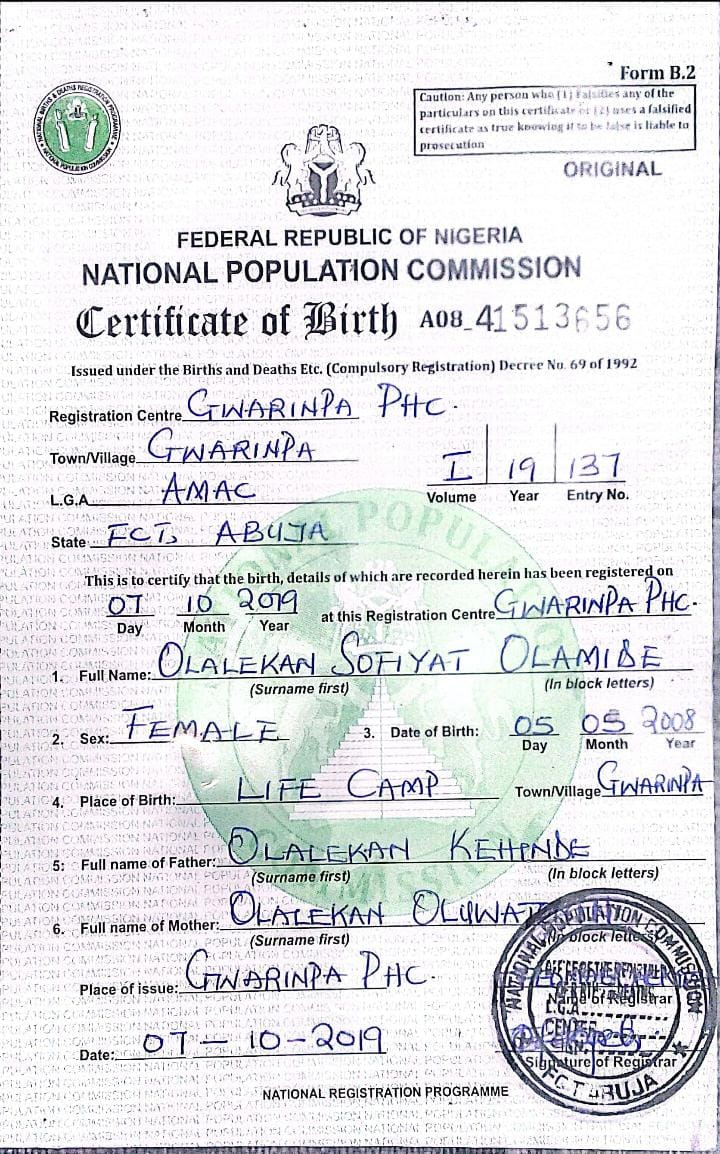 Form B.2
Caution: Any person who (1) Falsifies any of the
particulars on this certificate or (2) uses a falsified
certificate as true knowing it to be false is liable to
prosecution
ORIGINAL
NATIONAL BIRTHS & DEATHS REGISTRATION PROGRAMME
NATIONAL POPULATION COMMISSION
FEDERAL REPUBLIC OF NIGERIA
NATIONAL POPULATION COMMISSION
Certificate of Birth A08_41513656
Issued under the Births and Deaths Etc. (Compulsory Registration) Decree No. 69 of 1992
Registration Centre GWARINPA PHC.
Town/Village GWARINPA
L.G.A. AMAC
I 19 137
Volume Year Entry No.
State FCT, ABUJA
This is to certify that the birth, details of which are recorded herein has been registered on
07 10 2019 at this Registration Centre GWARINPA PHC.
Day Month Year
1. Full Name: OLALEKAN SOFIYAT OLAMIDE
(Surname first) (In block letters)
2. Sex: FEMALE 3. Date of Birth: 05 05 2008
Day Month Year
4. Place of Birth: LIFE CAMP Town/Village GWARINPA
5: Full name of Father: OLALEKAN KEHINDE
(Surname first) (In block letters)
6. Full name of Mother: OLALEKAN
(Surname first) (In block letters)
Place of issue: GWARINPA PHC.
Name of Registrar
Date: 07-10-2019
Signature of Registrar
NATIONAL POPULATION COMMISSION
L.G.A
CENTER
FCT ABUJA
NATIONAL REGISTRATION PROGRAMME